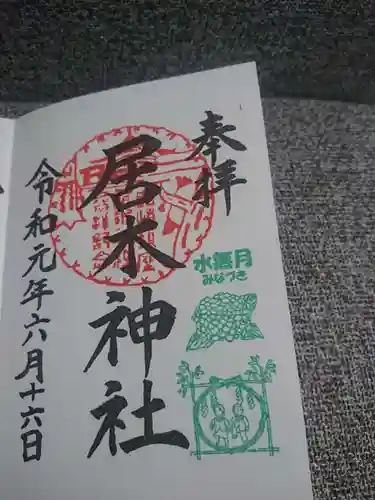 奉拝
水無月
みなづき
居木神社
令和元年六月十六日